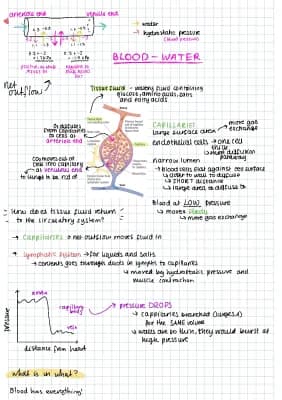 arteriole end
venule end
water
hydrostatic pressure
(blood pressure)
BLOOD - WATER
net
outflow
Tissue fluid - watery fluid containing
glucose, amino acids, salts
and fatty acids
O2 diffuses
from capillaries
to cells at
arteriole end
CO2 moves out of
cell into capillary
at venule end
to lungs to be rid of
CAPILLARIES
large surface area → more gas
exchange
endothelial cells → one cell
thick
short diffusion
pathway
narrow lumen
blood cells flat against the surface
closer to wall to diffuse
SHORT distance
large area to diffuse to
blood at LOW pressure
→ moves slowly
→ more gas exchange
How does tissue fluid return
to the circulatory system?
→ Capillaries → net outflow moves fluid in
→ Lymphatic System → for liquids and salts
→ contents goes through ducts in lymph to capillaries
→ moved by hydrostatic pressure and
muscle contraction
pressure
aorta
capillary
beds
vein
distance from heart
→ pressure DROPS
→ capillaries branched (lungs etc)
for the SAME volume
→ walls are so thin, they would burst at
high pressure
what is in what?
Blood has everything!